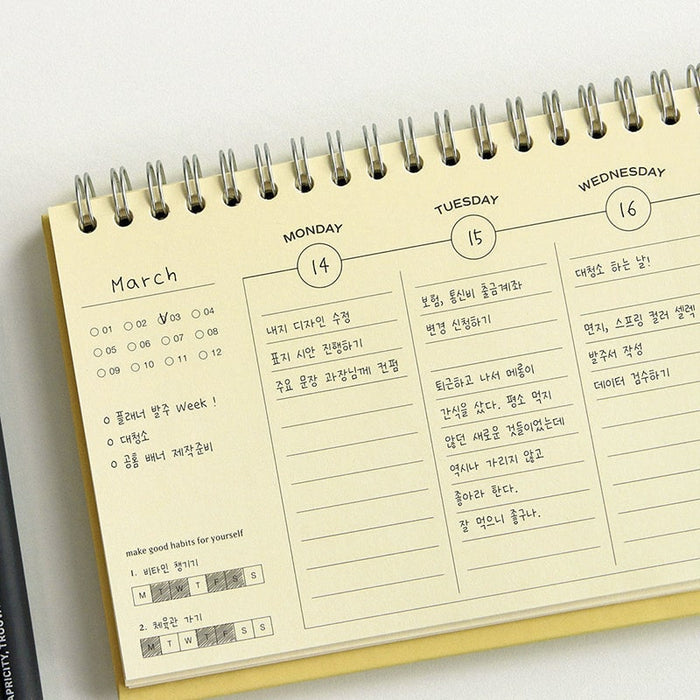 March
01 02 03 04
05 06 07 08
09 10 11 12
플래너 발주 Week !
대청소
공홈 배너 제작준비
make good habits for yourself
1. 비타민 챙기기
M T W T F S S
2. 체육관 가기
M T W T F S S
MONDAY
14
내지 디자인 수정
표지 시안 진행하기
주요 문장 과장님께 컨펌
TUESDAY
15
보험, 통신비 출금계좌
변경 신청하기
퇴근하고 나서 메롱이
간식을 샀다. 평소 먹지
않던 새로운 것들이었는데
역시나 가리지 않고
좋아라 한다.
잘 먹으니 좋구나.
WEDNESDAY
16
대청소 하는 날!
면지, 스프링 컬러 셀렉
발주서 작성
데이터 검수하기
APRICITY,